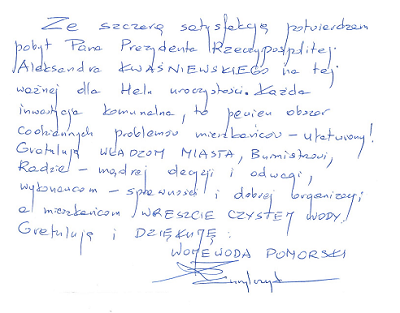 Ze szczerą satysfakcją potwierdzam
pobyt Pana Prezydenta Rzeczypospolitej
Aleksandra KWAŚNIEWSKIEGO na tej
ważnej dla Helu uroczystości. Każda
inwestycja komunalna, to pewien obszar
codziennych problemów mieszkańców – ułatwiony!
Gratuluję WŁADZOM MIASTA, Burmistrzowi,
Radzie – mądrej decyzji i odwagi,
wykonawcom – sprawności i dobrej organizacji
a mieszkańcom WRESZCIE CZYSTEJ WODY.
Gratuluję i DZIĘKUJĘ.
WOJEWODA POMORSKI